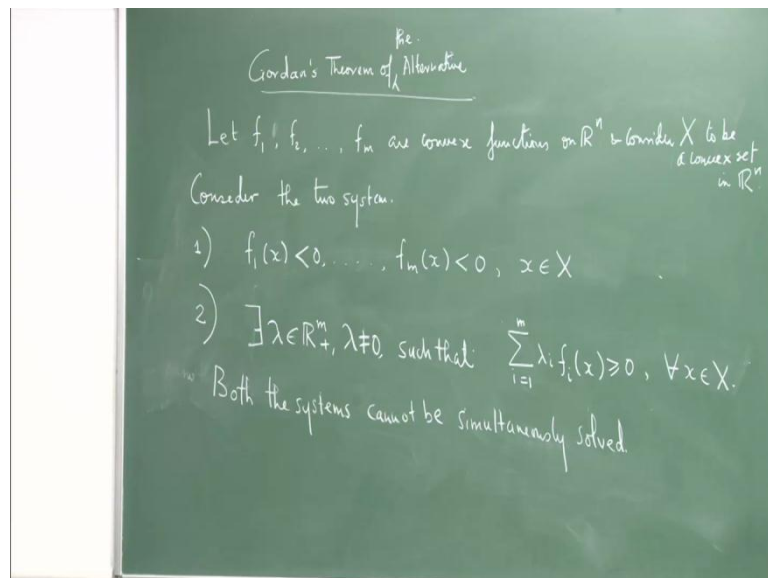 the.
Gordan's Theorem of ∧ Alternative
Let f₁, f₂, ..., fₘ are convex functions on ℝⁿ & consider X to be
a convex set
in ℝⁿ
Consider the two system.
1) f₁(x) < 0, ....., fₘ(x) < 0, x ∈ X
2) ∃ λ ∈ ℝ₊ᵐ, λ ≠ 0, such that ∑ᵢ₌₁ᵐ λᵢ fᵢ(x) ⩾ 0, ∀ x ∈ X.
Both the systems cannot be simultaneously solved.